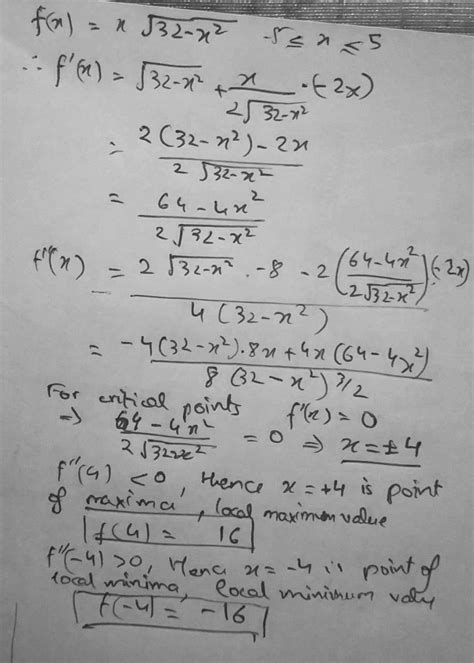 f(x) = x √32-x² -5 ≤ x ≤ 5
∴ f'(x) = √32-x² + x/2√32-x² · (-2x)
= 2(32-x²) - 2x / 2√32-x²
= 64-4x² / 2√32-x²
f''(x) = 2√32-x² · -8 - 2(64-4x²/2√32-x²)(-2x) / 4(32-x²)
= -4(32-x²)·8x + 4x(64-4x²) / 8(32-x²)^3/2
For critical points f'(x) = 0
⇒ 64-4x² / 2√32-x² = 0 ⇒ x = ±4
f''(4) < 0, Hence x = +4 is point
of maxima, local maximum value
f(4) = 16
f''(-4) > 0, Hence x = -4 is point of
local minima, local minimum value
f(-4) = -16